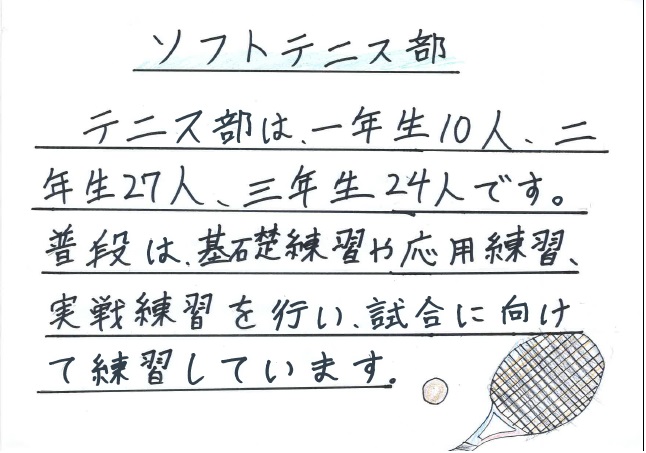 ソフトテニス部
テニス部は、一年生10人、二
年生27人、三年生24人です。
普段は、基礎練習や応用練習、
実戦練習を行い、試合に向け
て練習しています。